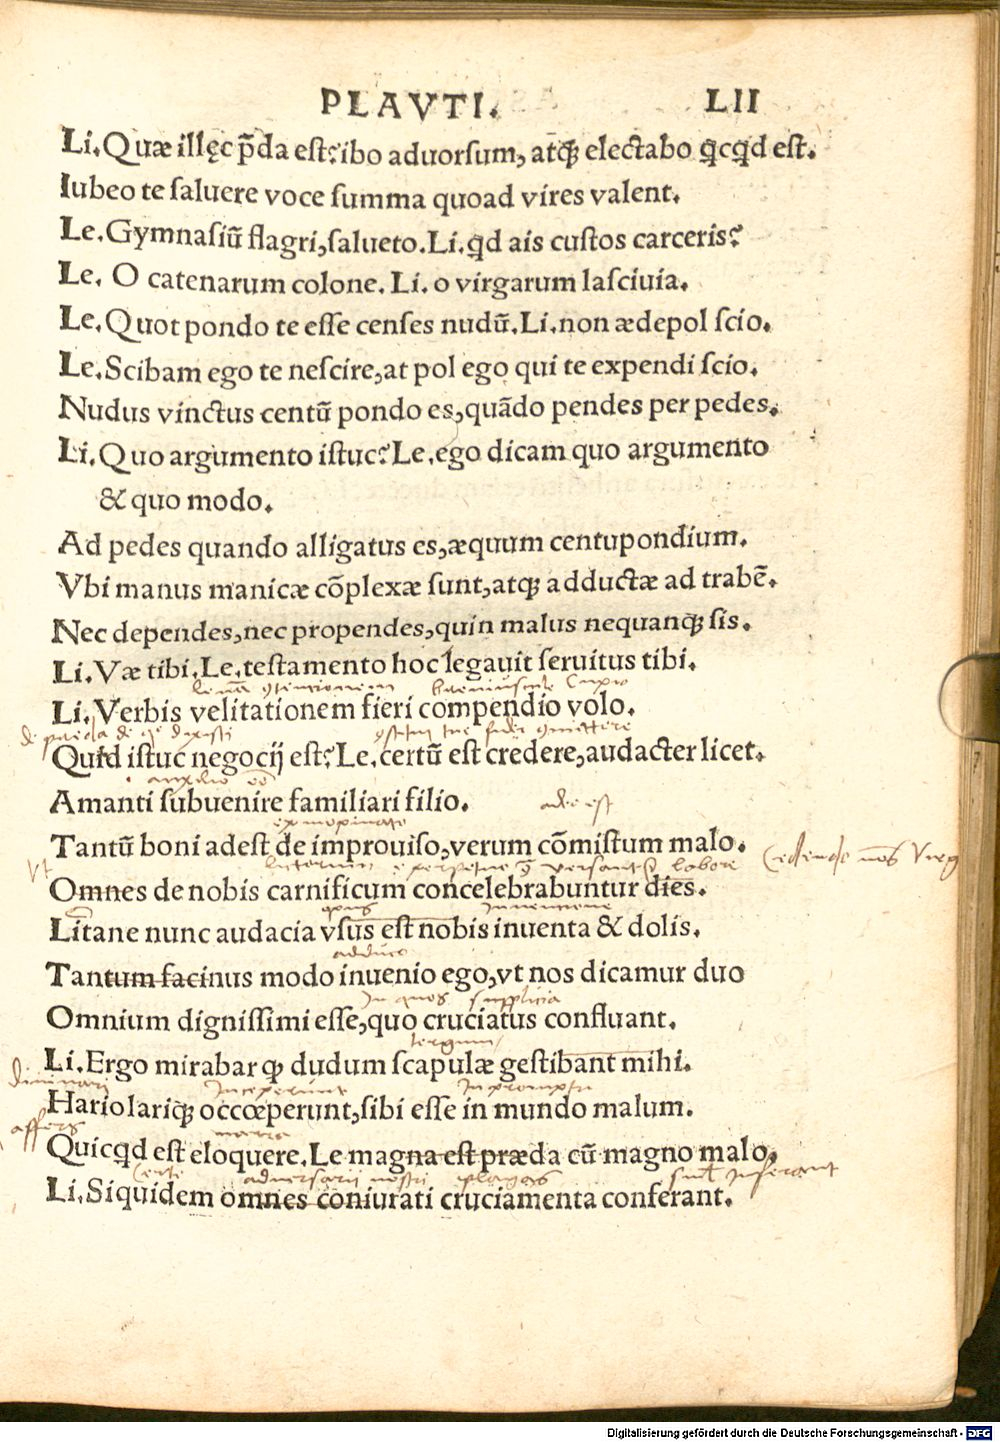 PLAVTI. LII
Li. Quæ illęc p̄da est? ibo aduorsum, atq̃ electabo q̇cq̇d est.
Iubeo te saluere voce summa quoad vires valent.
Le. Gymnasiū flagri, salueto. Li. q̇d ais custos carceris?
Le. O catenarum colone. Li. o virgarum lasciuia.
Le. Quot pondo te esse censes nudū. Li. non ædepol scio.
Le. Scibam ego te nescire, at pol ego qui te expendi scio.
Nudus vinctus centū pondo es, quādo pendes per pedes.
Li. Quo argumento istuc? Le. ego dicam quo argumento
& quo modo.
Ad pedes quando alligatus es, æquum centupondium.
Vbi manus manicæ cōplexæ sunt, atq; adductæ ad trabē.
Nec dependes, nec propendes, quin malus nequanq̃ sis.
Li. Væ tibi. Le. testamento hoc legauit seruitus tibi.
Li. Verbis velitationem fieri compendio volo.
Quid istuc negocij est? Le. certū est credere, audacter licet.
Amanti subuenire familiari filio.
adest
ex inopinato
Tantū boni adest de improuiso, verum cōmistum malo.
Vt
Omnes de nobis carnificum concelebrabuntur dies.
opus inuentione
Litane nunc audacia vsus est nobis inuenta & dolis.
adduco
Tantum facinus modo inuenio ego, vt nos dicamur duo
In quos supplicia
Omnium dignissimi esse, quo cruciatus confluant.
tergum
Li. Ergo mirabar q; dudum scapulæ gestibant mihi.
diuinari Inceperunt In promptu
Hariolariq̃ occœperunt, sibi esse in mundo malum.
affers narra
Quicq̇d est eloquere. Le magna est præda cū magno malo.
certe aduersarii nostri plagas simul inferant
Li. Siquidem omnes coniurati cruciamenta conferant.
Digitalisierung gefördert durch die Deutsche Forschungsgemeinschaft - DFG